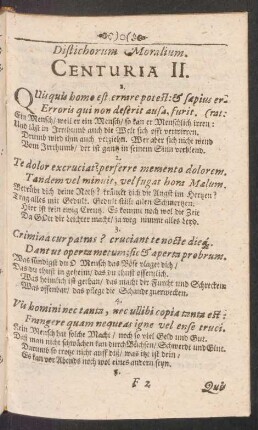 Distichorum Moralium.
CENTURIA II.
1.
QUisquis homo est errare potest: & sæpius er-
Errori qui non deserit ausa, furit. (rat:
Ein Mensch/ weil er ein Mensch/ so kan er Menschlich irren:
Und läst in Irrthumb auch die Welt sich offt verwirren.
Drumb wird ihm auch verziehn. Wer aber sich nicht wend
Vom Irrthumb/ der ist gantz in seinem Sinn verblend.
2.
Te dolor excruciat? perferre memento dolorem.
Tandem vel minuit, vel fugat hora Malum.
Betrübt dich deine Noth? kränckt dich die Angst im Hertzen?
Trag alles mit Gedult. Gedult stillt alln Schmertzen.
Hier ist kein ewig Creutz. Es kommt noch wol die Zeit
Da GOtt dir leichter macht/ ja weg nimmt alles leyd.
3.
Crimina cur patras? cruciant te nocte dieq́;.
Dant ut operta metum: sic & aperta probrum.
Was sündigst du O Mensch das Böse plaget dich/
Das du thust in geheim/ das du thust offentlich.
Was heimlich ist gethan/ das macht dir Furcht und Schrecken
Was offenbar/ das pflegt die Schande zuerwecken.
4.
Vis homini nec tanta, nec ulli copia tanta est:
Frangere quam nequeas igne vel ense truci.
Kein Mensch hat solche Macht/ noch so viel Geld und Gut.
Das man nicht schwächen kan durch Büchsen/ Schwerdt und Glut.
Darumb so trotze nicht auff diß/ was itzt ist dein/
Es kan vor Abends noch wol eines andern seyn.
5.
F 2 Quis